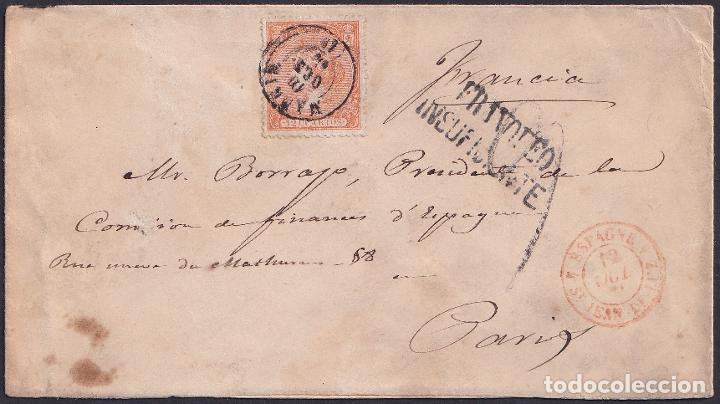 MADRID
10
OCT
Francia
FRANQUEO
INSUFICIENTE
Mr. Borrajo, President de la
Comision de finances d'Espagne
Rue neuve des Mathurins 88
Paris
ESPAGNE
12
OCT.
ST JEAN DE LUZ
todocoleccion